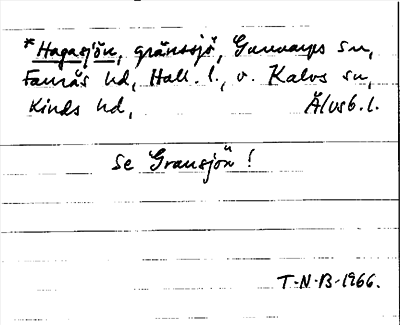 *Hagasjön, gränssjö, Gunnarps sn,
Faurås hd, Hall. l., o. Kalvs sn,
Kinds hd, Älvsb. l.
Se Gransjön!
T-N-B-1966.